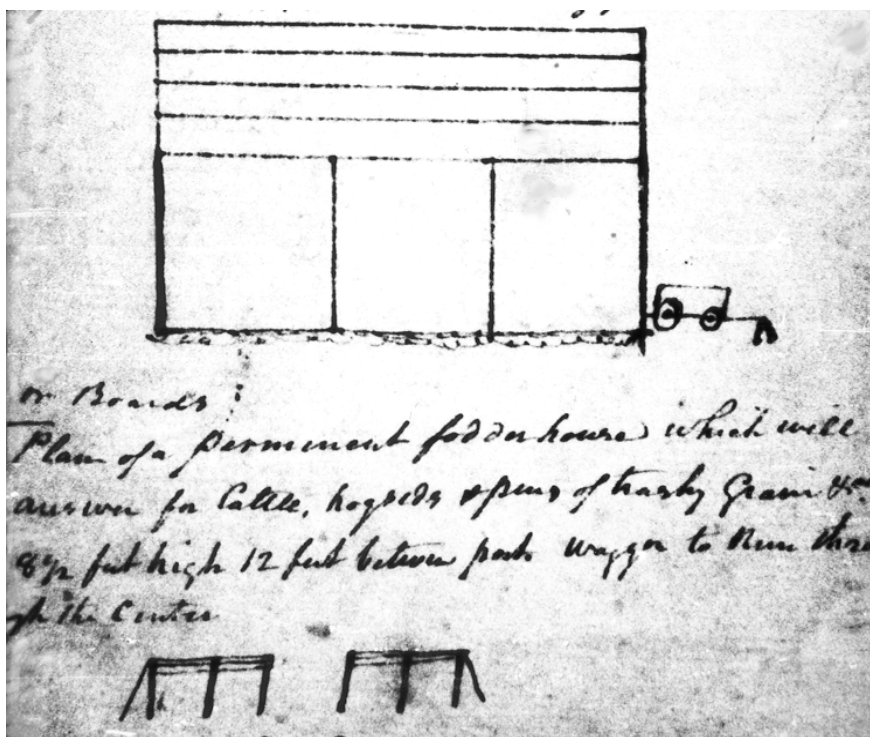 or Boards
Plan of a perminent fodderhouse which will
answer for Cattle, hogs &pens of trashy Grain &c
8½ feet high 12 feet between posts waggon to Run thro
gh the Center